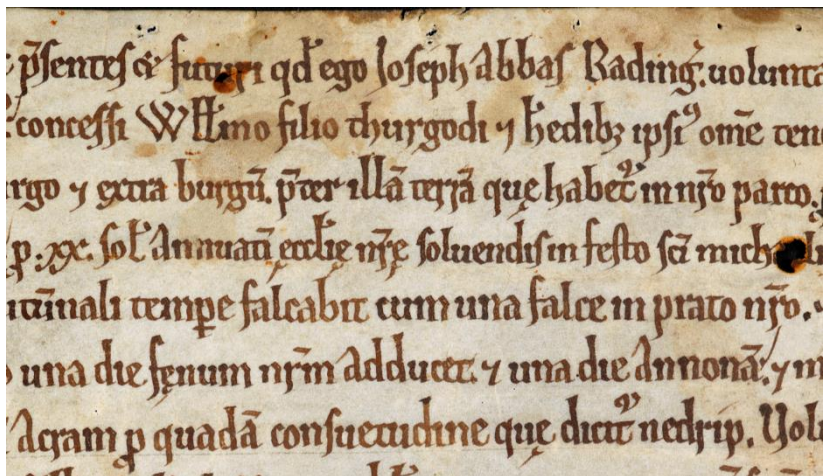 p̄sentes & futuri qd̄ ego Joseph Abbas Rading̃. uolunta
concessi Wiłłmo filio thurgodi ⁊ h̄edibȝ ipsiꝰ om̄e ten
rgo ⁊ extra burgū. p̄ter illā terrā quę habet᷒ in nr̄o parco.
ꝑ .xx. sol̄ Annuati᷒ ęccl̄ię nr̄ę soluendis in festo sc̄i micha li
tūnali temꝑe falcabit cum una falce in prato nr̄o.
una die fęnum nr̄m Adducet. ⁊ una die Annonā. ⁊ m
Acram ꝑ quadā consuetudine quę dicit᷒ nedrip. Uolu